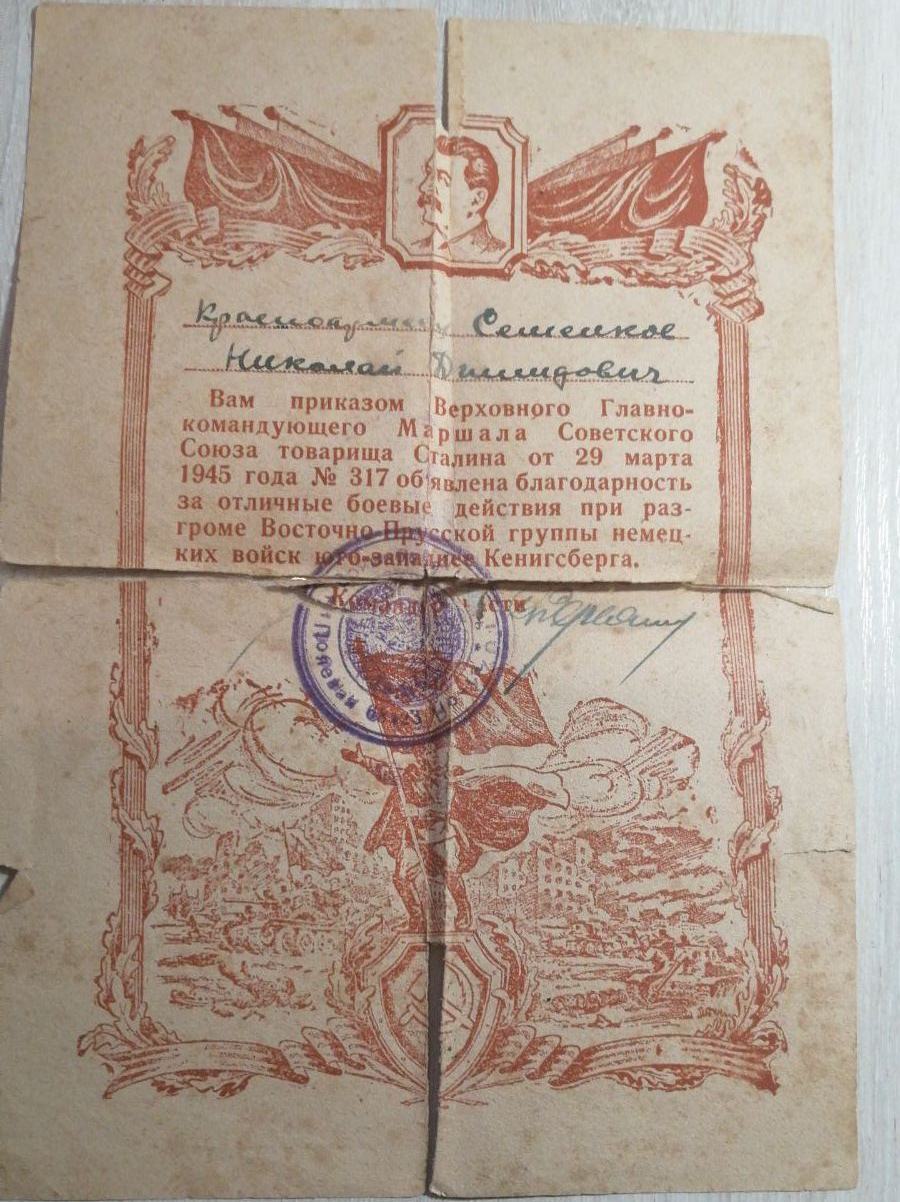 Красноармеец Семенков
Николай Демидович
Вам приказом Верховного Главно-
командующего Маршала Советского
Союза товарища Сталина от 29 марта
1945 года № 317 объявлена благодарность
за отличные боевые действия при раз-
громе Восточно-Прусской группы немец-
ких войск юго-западнее Кенигсберга.
Командир части